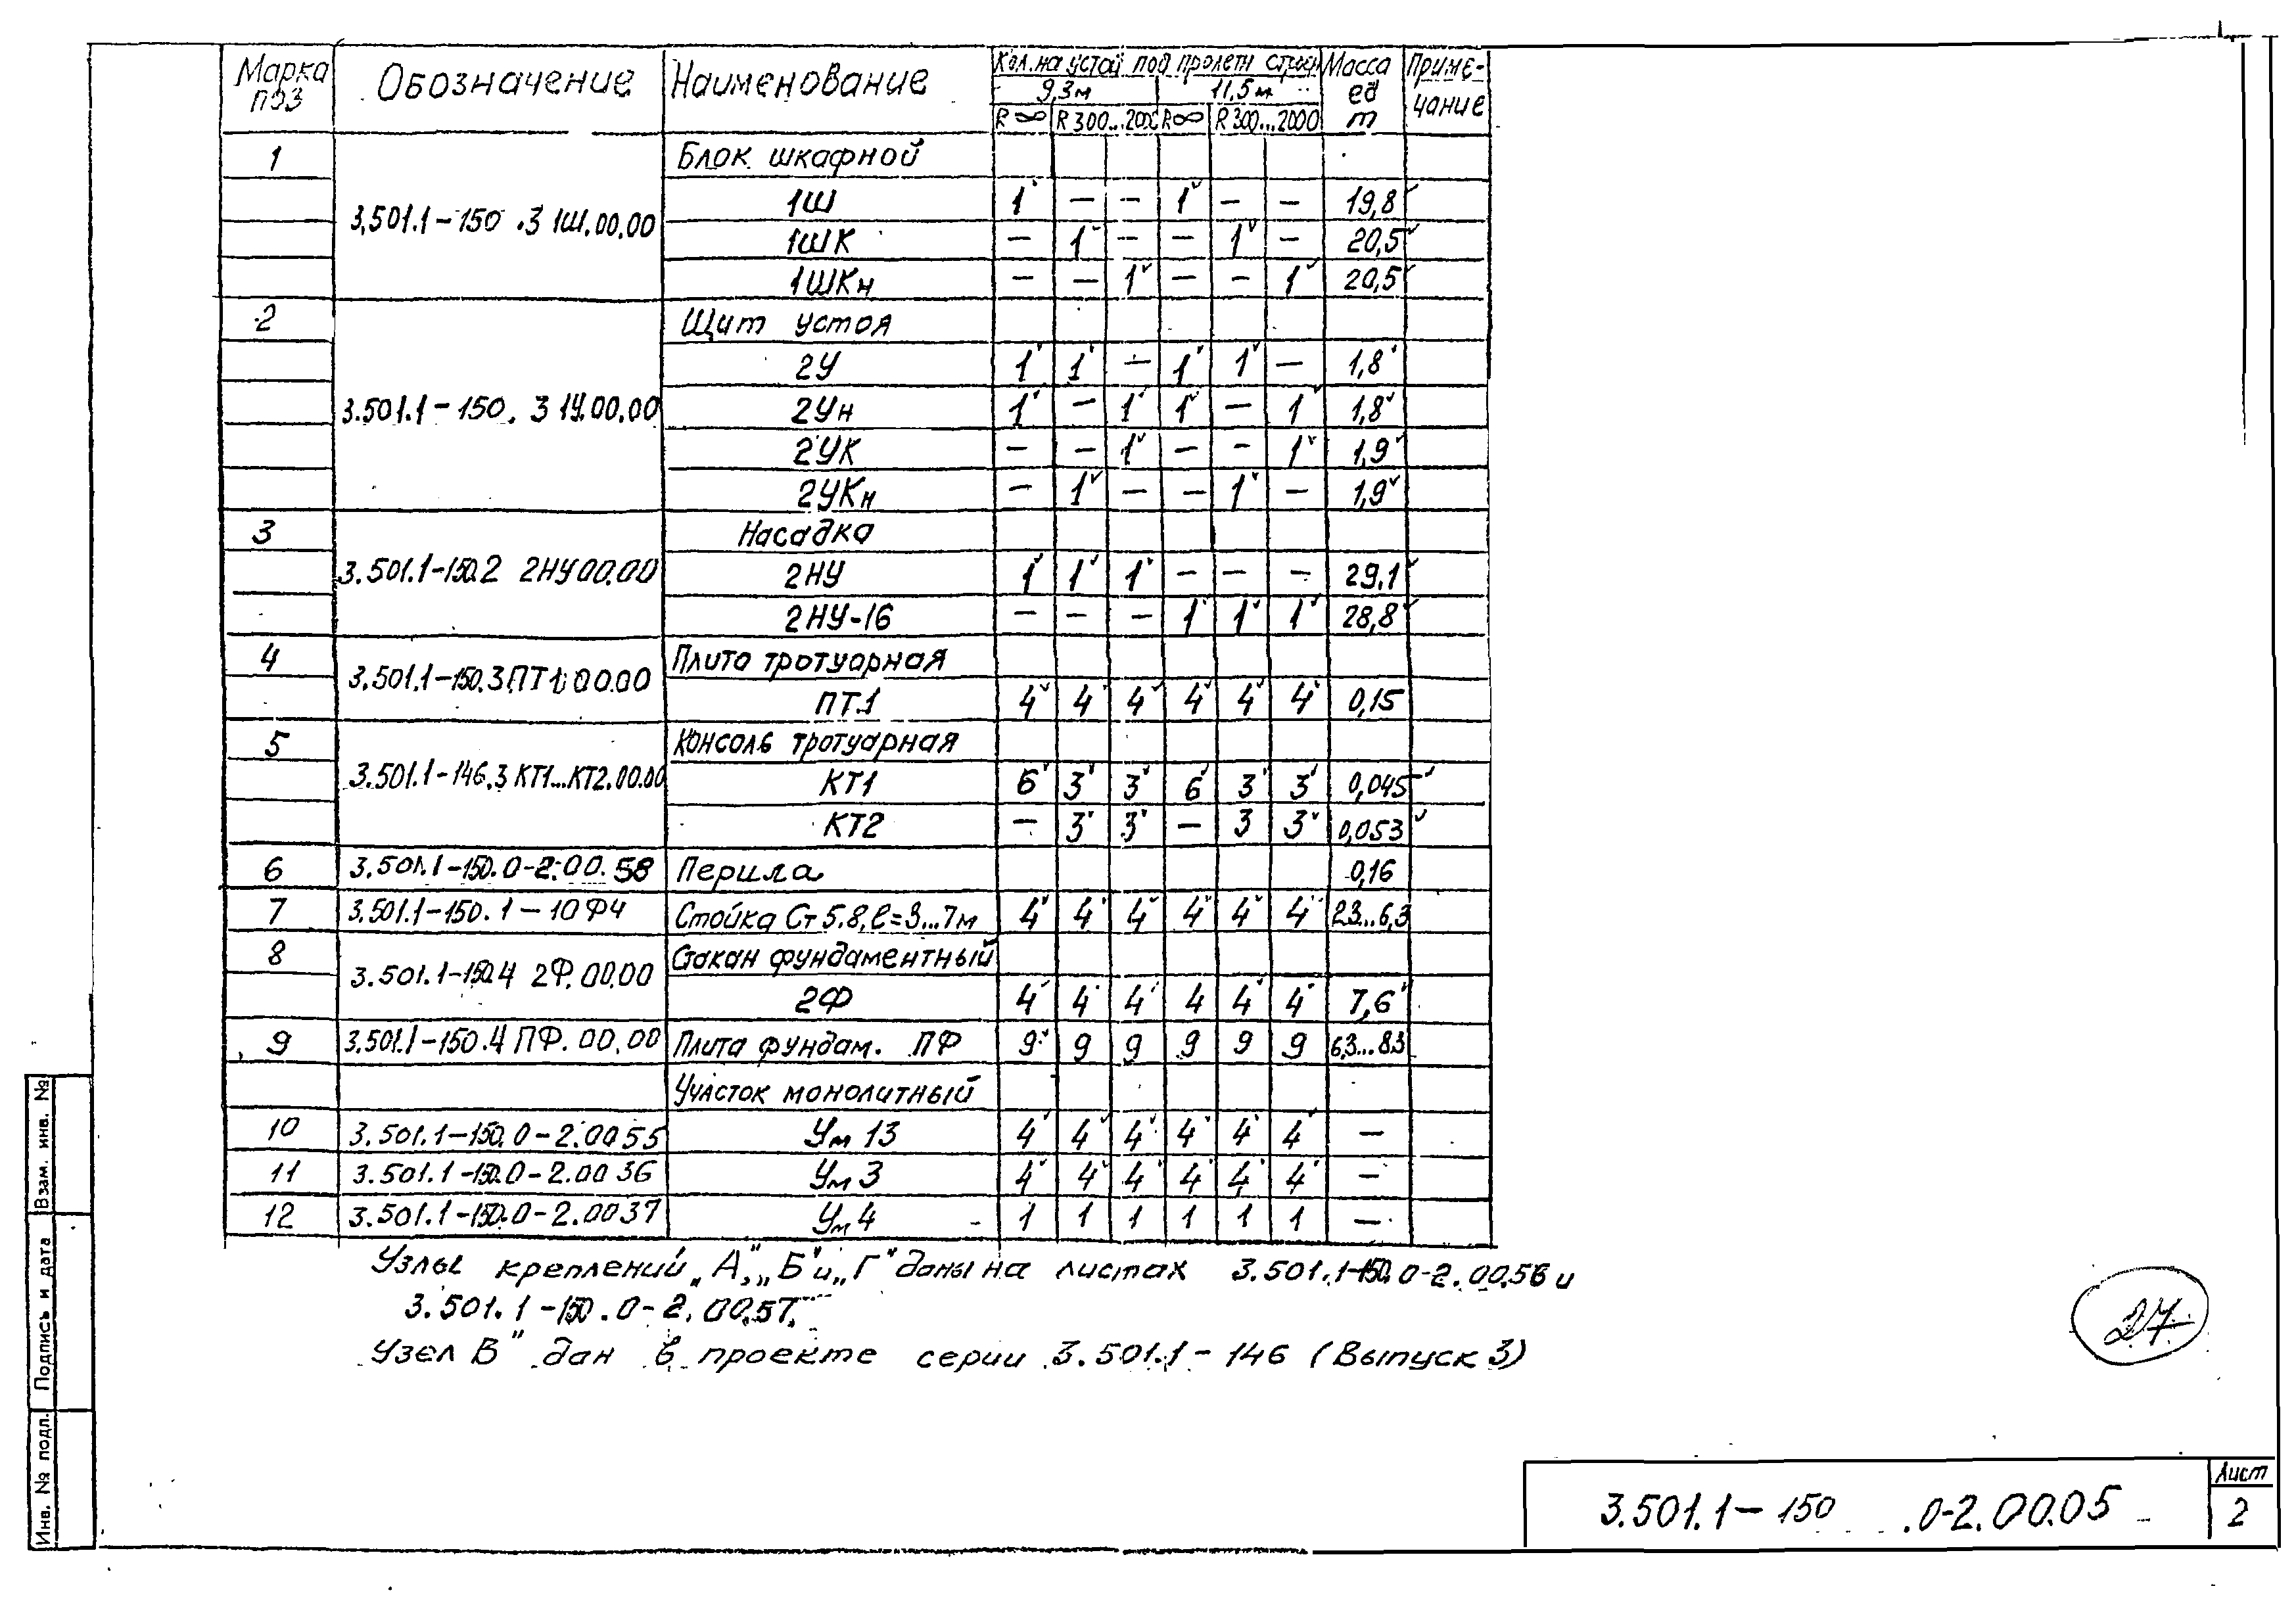 Марка поз Обозначение Наименование Кол. на устой под пролетн строен Масса ед т Примечание
9,3м 11,5м
R∞ R300...2000 R∞ R300...2000
1 Блок шкафной
3.501.1-150.3 1Ш.00.00 1Ш 1 — — 1 — — 19,8
1ШК — 1 — — 1 — 20,5
1ШКн — — 1 — — 1 20,5
2 Щит устоя
2У 1 1 — 1 1 — 1,8
3.501.1-150.3 1У.00.00 2Ун 1 — 1 1 — 1 1,8
2УК — — 1 — — 1 1,9
2УКн — 1 — — 1 — 1,9
3 Насадка
3.501.1-150.2 2НУ00.00 2НУ 1 1 1 — — — 29,1
2НУ-16 — — — 1 1 1 28,8
4 Плита тротуарная
3.501.1-150.3ПТ1.00.00 ПТ.1 4 4 4 4 4 4 0,15
5 Консоль тротуарная
3.501.1-146.3 КТ1...КТ2.00.00 КТ1 6 3 3 6 3 3 0,045
КТ2 — 3 3 — 3 3 0,053
6 3.501.1-150.0-2.00.58 Перила 0,16
7 3.501.1-150.1-10Ф4 Стойка Ст5.8, ℓ=3...7м 4 4 4 4 4 4 2.3...6,3
8 Стакан фундаментный
3.501.1-150.4 2Ф.00.00 2Ф 4 4 4 4 4 4 7,6
9 3.501.1-150.4 ПФ.00.00 Плита фундам. ПФ 9 9 9 9 9 9 6,3...8,3
Участок монолитный
10 3.501.1-150.0-2.0055 Ум 13 4 4 4 4 4 4 —
11 3.501.1-150.0-2.0036 Ум 3 4 4 4 4 4 4 —
12 3.501.1-150.0-2.0037 Ум 4 1 1 1 1 1 1 —
Узлы креплений „А", „Б" и „Г" даны на листах 3.501.1-150.0-2.00.56 и
3.501.1-150.0-2.00.57.
Узел В" дан в проекте серии 3.501.1-146 (Выпуск 3)
27
Взам. инв. №
Подпись и дата
Инв. № подл.
3.501.1-150 .0-2.00.05
Лист
2